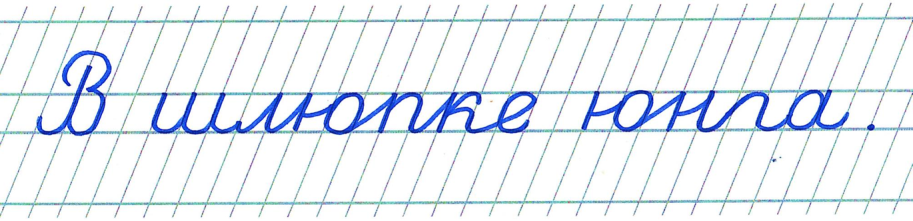 В шлюпке юнга.